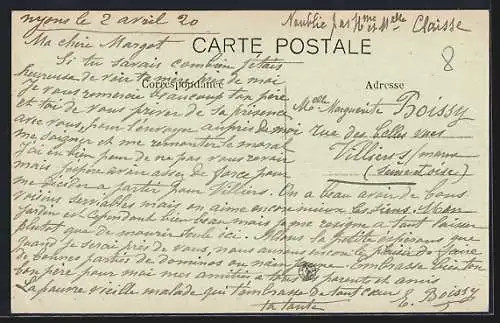 nyons le 2 avril 20
N'oublie pas Mme et Melle Claisse
Ma chère Margot
CARTE POSTALE
8
Si tu savais combien j'étais
heureuse de voir ta mis près de moi
Correspondance
Adresse
Je vous remercie beaucoup ton père
et toi de vous priver de sa présence
Melle Marguerite Boissy
avec vous, pour l'envoyer auprès de moi
rue des belles vues
me soigner et me remonter le moral
Villiers s/ marne
J'ai eu bien peur de ne pas vous revoir
(Seine et Oise)
mais j'espère avoir assez de force pour
me décider a partir pour Villiers. On a beau avoir de bons
voisins serviables mais on aime encore mieux les siens. Mon
jardin est cependant bien beau mais je me résigne a tout laisser
plutôt que de mourir toute ici. Nous la petite espérons que
quand je serai près de vous, nous aurons encore le plaisir de faire
de bonnes parties de dominos ou nain jaune. Embrasse bien ton
bon père pour moi mes amitiés a tous parents et amis
La pauvre vieille malade qui t'embrasse de tout cœur E. Boissy
ta tante